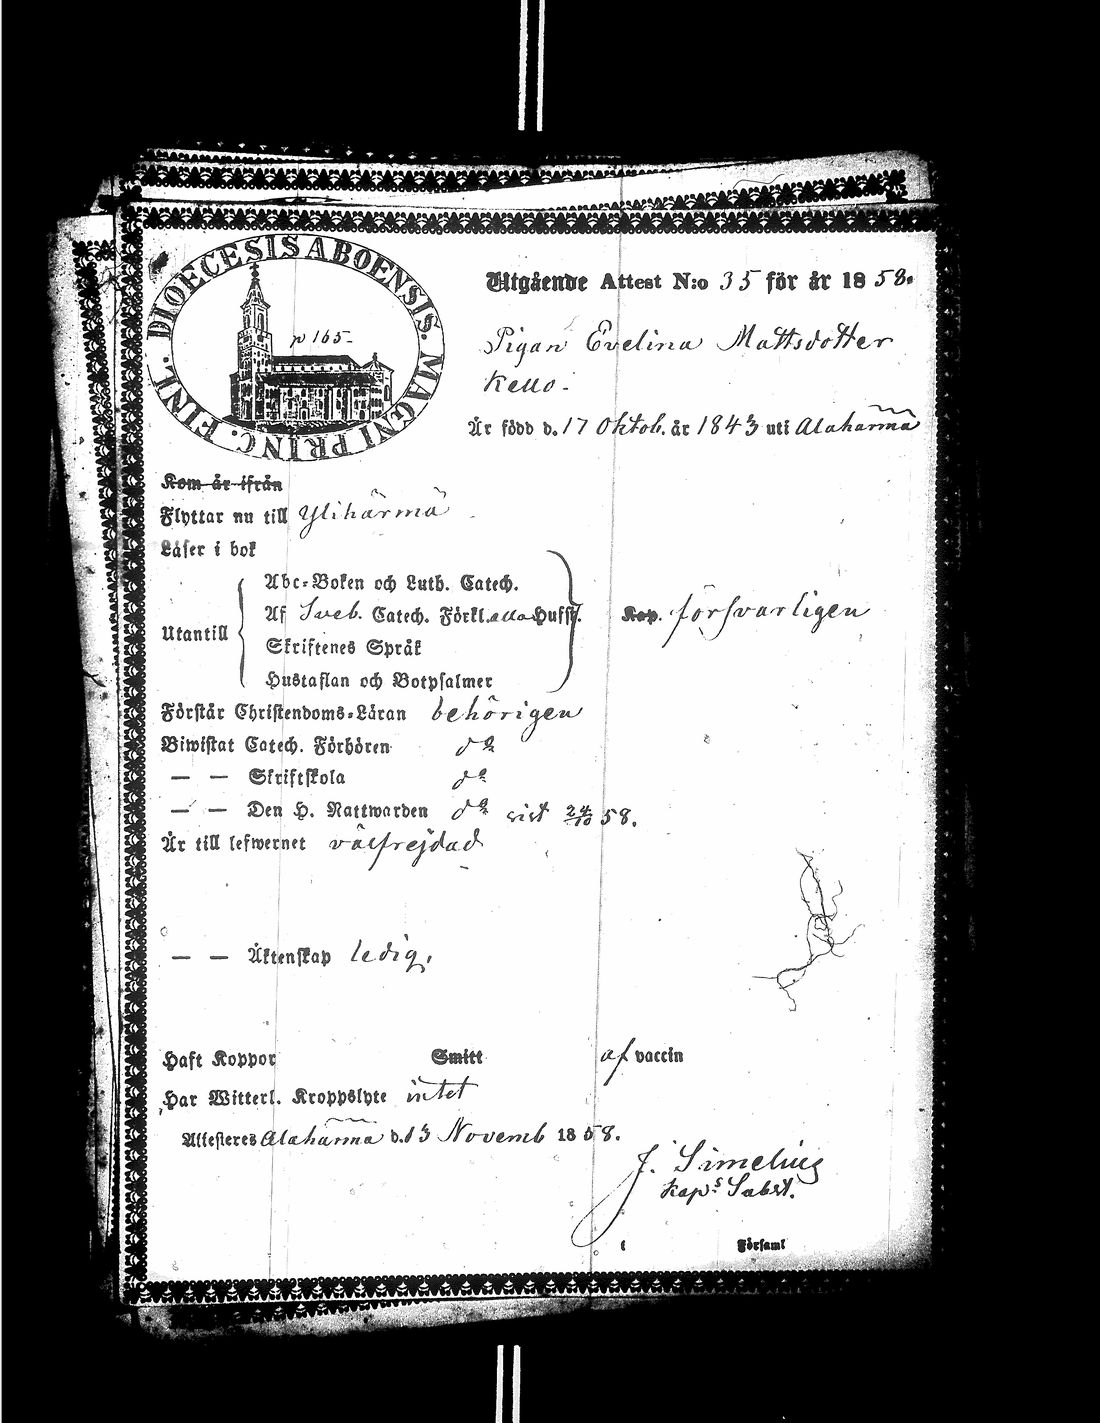 DIOECESIS ABOENSIS. MAGNI PRINC. FINL.
p 165-
Utgående Attest N:o 35 för år 1858.
Pigan Evelina Mattsdotter
Kello.
Är född d. 17 Oktob. år 1843 uti Alahärmä
Kom år ifrån
Flyttar nu till Ylihärmä
Läser i bok
Utantill
Abc-Boken och Luth. Catech.
Af Sveb. Catech. Förkl. Hufst.
försvarligen
Skriftenes Språk
Hustaflan och Botpsalmer
Förstår Christendoms-Läran behörigen
Biwistat Catech. Förhören do
— — Skriftskola do
— — Den H. Nattwarden do sist 24/10 58.
Är till lefwernet välfrejdad
— — Äktenskap ledig.
Haft Koppor Smitt af vaccin
Har Witterl. Kroppslyte intet
Attesteres Alahärmä d. 13 Novemb 1858.
J. Simelius
Kaps Subst.
i Församl